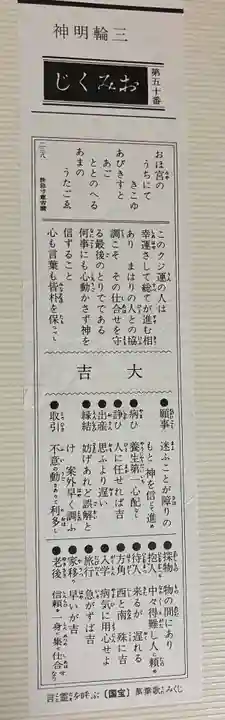 三輪明神
おみくじ
第五十番
おほ宮の
うちにて
きこゆ
あびきすと
あご
ととのへる
あまの
うたごゑ
このクジ運の人は
幸運さして総てが進む相
あり まはりの人との協
調こそ その仕合せを守
る最後のとりでである
何事にも心動かさず神を
信ずること
心も言葉も皆朴を保こし
大吉
●願事 迷ふことが障りの
もと、神を信じて進め
●病ひ 養生第一心配なし
●諍ひ 人に任せれば吉
●出産 思ふより遅い
●縁結 妨げあれど誤解と
け 案外早く調ふ
●取引 不意の動きあって利多し
●探物 物の間にあり
●抱入 中々得難し人に頼め
●待人 来るが 遅れる
●方角 西と南 殊に吉
●入学 病気に用心せよ
●旅行 急がず吉
●家移 早いが吉
●老後 信頼一身に集め仕合なり
言霊を呼ぶ【国宝】萬葉歌みくじ